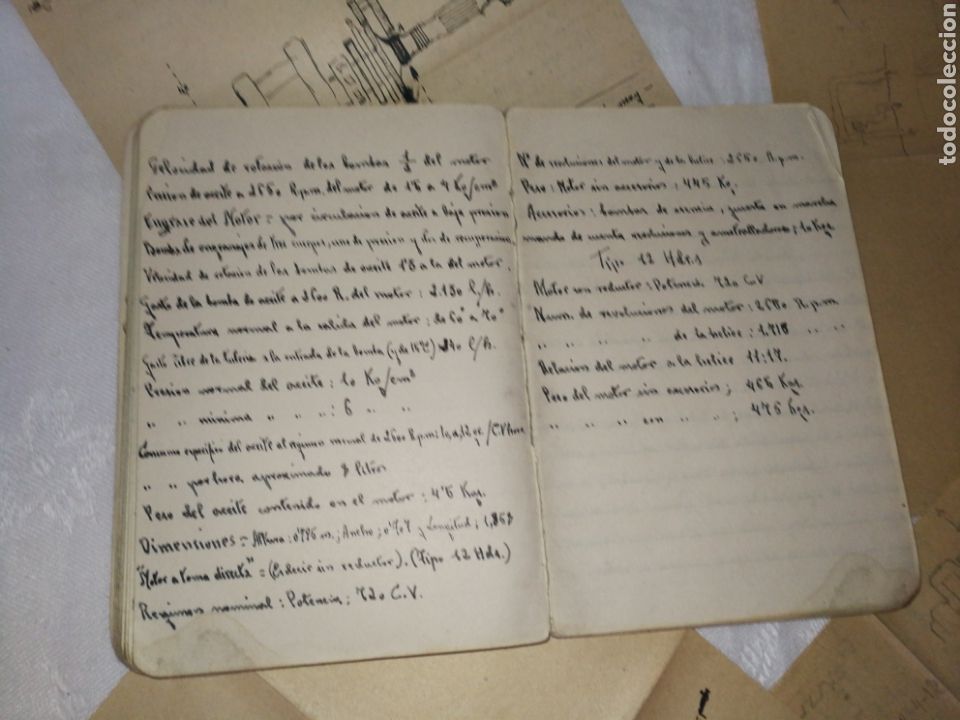 Velocidad de rotación de las bombas 1/2 del motor
Presion de aceite a 2600 R.p.m. del motor de 1'5 a 4 Kg/cm²
Engrase del Motor = por circulacion de aceite a baja presion
Bomba de engranajes de tres cuerpos, uno de presion y dos de recuperacion
Velocidad de rotacion de las bombas de aceite 1'5 a la del motor.
Gasto de la bomba de aceite a 2600 R. del motor: 2.130 l/h.
Temperatura normal a la salida del motor: de 60° a 70°
Gasto libre de la tuberia a la entrada de la bomba 340 l/h.
Presion normal del aceite: 10 Kg/cm²
" " minima " " " : 6 " "
Consumo especifico del aceite al regimen normal de 2600 R.p.m. /C.V hora
" " por hora aproximado 8 litros
Peso del aceite contenido en el motor: 4'5 Kgs.
Dimensiones = Altura: 0'796 m.; Ancho; 0'707 y Longitud; 1,868
"Motor a toma directa" = (Es decir sin reductor). (Tipo 12 Hds.)
Regimen nominal: Potencia; 720 C.V.
Nº de revoluciones del motor y de la helice: 2680 R.p.m.
Peso: Motor sin accesorios: 445 Kg.
Accesorios: bombas de esencia, puesta en marcha
mando de cuenta revoluciones y ametralladoras; 10 Kgs
Tipo 12 Hdrs
Motor con reductor: Potencia 720 C.V
Num. de revoluciones del motor: 2680 R.p.m
" " " " de la helice: 1.718 " "
Relacion del motor a la helice 11:17.
Peso del motor sin accesorios; 466 Kgs.
" " " con " ; 476 Kgs.
todocoleccion